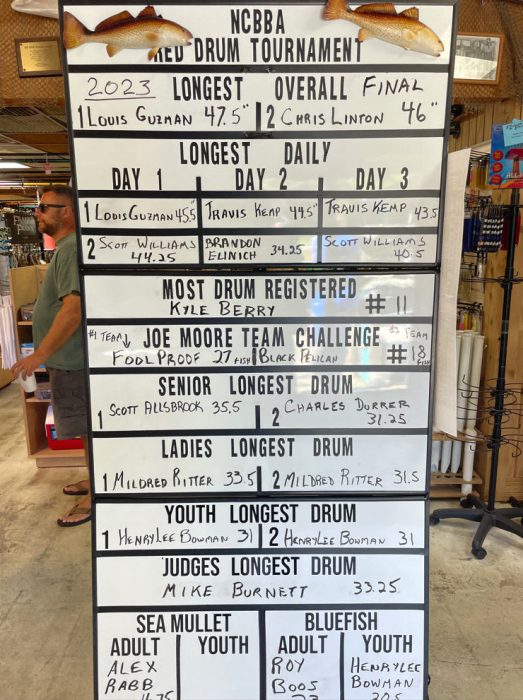 NCBBA
RED DRUM TOURNAMENT
2023 LONGEST OVERALL FINAL
1 LOUIS GUZMAN 47.5" 2 CHRIS LINTON 46"
LONGEST DAILY
DAY 1 DAY 2 DAY 3
1 LOUIS GUZMAN 45.5" TRAVIS KEMP 44.5" TRAVIS KEMP 43.5
2 SCOTT WILLIAMS 44.25 BRANDON ELINICH 34.25 SCOTT WILLIAMS 40.5
MOST DRUM REGISTERED
KYLE BERRY # 11
#1 TEAM JOE MOORE TEAM CHALLENGE #2 TEAM
FOOL PROOF 27 FISH BLACK PELICAN # 18 FISH
SENIOR LONGEST DRUM
1 SCOTT ALLSBROOK 35.5 2 CHARLES DURRER 31.25
LADIES LONGEST DRUM
1 MILDRED RITTER 33.5 2 MILDRED RITTER 31.5
YOUTH LONGEST DRUM
1 HENRYLEE BOWMAN 31 2 HENRYLEE BOWMAN 31
JUDGES LONGEST DRUM
MIKE BURNETT 33.25
SEA MULLET BLUEFISH
ADULT YOUTH ADULT YOUTH
ALEX ROY HENRYLEE
RABB BOOS BOWMAN